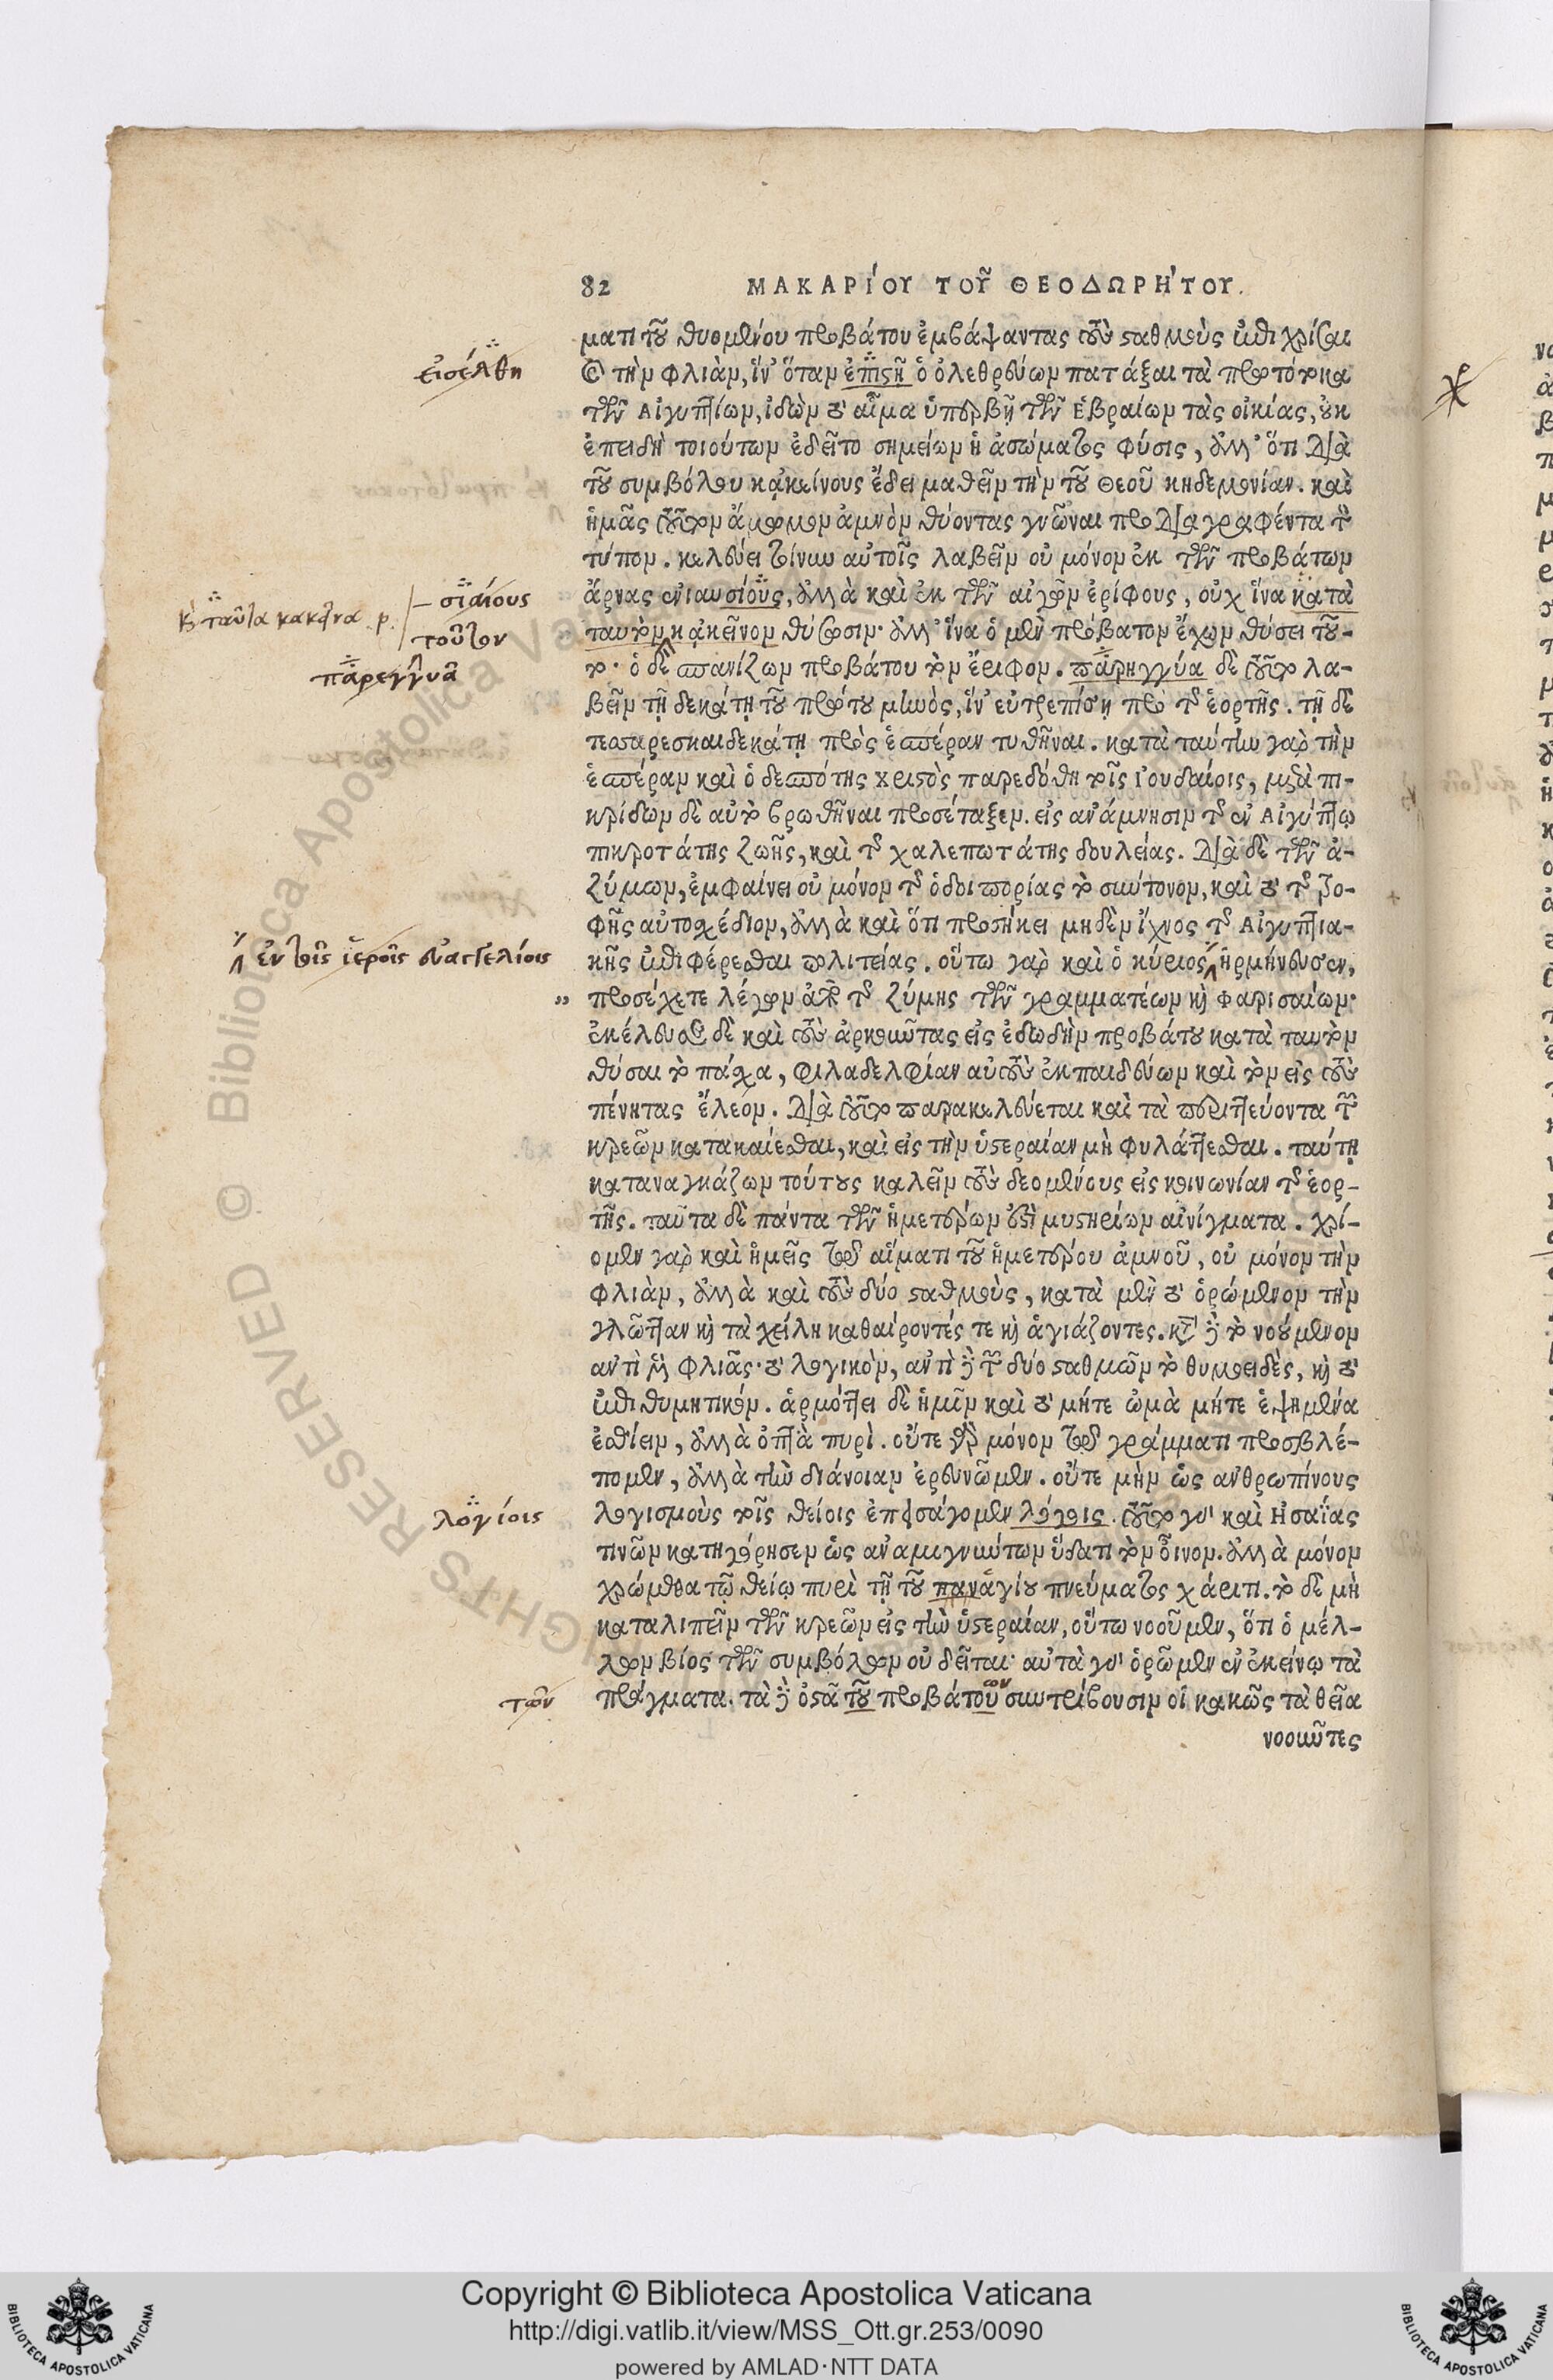 82 ΜΑΚΑΡΊΟΥ ΤΟΥ͂ ΘΕΟΔΩΡΉΤΟΥ.
ματι τοῦ θυομένου προβάτου ἐμβάψαντας τοὺς σαθμοὺς ἐπιχρίσαι
καὶ τὴν φλιὰν, ἵν' ὅταν ἐπιςῆ ὁ ὀλεθρεύων πατάξαι τὰ πρωτότοκα
τῶν Αἰγυπτίων, ἰδὼν τὸ αἷμα ὑπερβῇ τῶν Ἑβραίων τὰς οἰκίας, οὐκ
ἐπειδὴ τοιούτων ἐδεῖτο σημείων ἡ ἀσώματος φύσις, ἀλλ' ὅτι διὰ
τοῦ συμβόλου κᾀκείνους ἔδει μαθεῖν τὴν τοῦ Θεοῦ κηδεμονίαν. καὶ
ἡμᾶς τοῦτον ἄμωμον ἀμνὸν θύοντας γνῶναι προδιαγραφέντα τὸν
τύπον. κελεύει τοίνυν αὐτοῖς λαβεῖν οὐ μόνον ἐκ τῶν προβάτων
ἄρνας ἐνιαυσίους, ἀλλὰ καὶ ἐκ τῶν αἰγῶν ἐρίφους, οὐχ ἵνα κατὰ
ταυτὸν κᾀκεῖνον θύσωσιν· ἀλλ' ἵνα ὁ μὲν πρόβατον ἔχων θύσει τοῦ-
το· ὁ δὲ σπανίζων προβάτου τὸν ἔριφον. παρηγγύα δὲ τοῦτο λα-
βεῖν τῇ δεκάτῃ τοῦ πρώτου μηνὸς, ἵν' εὐτρεπίσῃ πρὸ τῆς ἑορτῆς. τῇ δὲ
τεσσαρεσκαιδεκάτῃ πρὸς ἑσπέραν τυθῆναι. κατὰ ταύτην γὰρ τὴν
ἑσπέραν καὶ ὁ δεσπότης Χριςὸς παρεδόθη τοῖς Ἰουδαίοις, μετὰ πι-
κρίδων δὲ αὐτὸ βρωθῆναι προσέταξεν. εἰς ἀνάμνησιν τῆς ἐν Αἰγύπτῳ
πικροτάτης ζωῆς, καὶ τῆς χαλεπωτάτης δουλείας. διὰ δὲ τῶν ἀ-
ζύμων, ἐμφαίνει οὐ μόνον τῆς ὁδοιπορίας τὸ σύντονον, καὶ τὸ τῆς τρο-
φῆς αὐτοσχέδιον, ἀλλὰ καὶ ὅτι προσήκει μηδὲν ἴχνος τῆς Αἰγυπτια-
κῆς ἐπιφέρεσθαι πολιτείας. οὕτω γὰρ καὶ ὁ κύριος ἡρμήνευσεν,
„ προσέχετε λέγων ἀπὸ τῆς ζύμης τῶν γραμματέων καὶ Φαρισαίων·
ἐκέλευσε δὲ καὶ τοὺς ἀρκοῦντας εἰς ἐδωδὴν προβάτου κατὰ ταυτὸν
θύσαι τὸ πάσχα, φιλαδελφίαν αὐτοὺς ἐκπαιδεύων καὶ τὸν εἰς τοὺς
πένητας ἔλεον. διὰ τοῦτο παρακελεύεται καὶ τὰ περιττεύοντα τῶν
κρεῶν κατακαίεσθαι, καὶ εἰς τὴν ὑςεραίαν μὴ φυλάττεσθαι. ταύτῃ
καταναγκάζων τούτους καλεῖν τοὺς δεομένους εἰς κοινωνίαν τῆς ἑορ-
τῆς. ταῦτα δὲ πάντα τῶν ἡμετέρων ἐςὶ μυςηρίων αἰνίγματα. χρί-
ομεν γὰρ καὶ ἡμεῖς τῷ αἵματι τοῦ ἡμετέρου ἀμνοῦ, οὐ μόνον τὴν
φλιὰν, ἀλλὰ καὶ τοὺς δύο ςαθμοὺς, κατὰ μὲν τὸ ὁρώμενον τὴν
γλῶτταν καὶ τὰ χείλη καθαίροντές τε καὶ ἁγιάζοντες. κατὰ δὲ τὸ νούμενον
ἀντὶ τῆς φλιᾶς· τὸ λογικὸν, ἀντὶ δὲ τῶν δύο ςαθμῶν τὸ θυμοειδὲς, καὶ τὸ
ἐπιθυμητικόν. ἁρμόττει δὲ ἡμῖν καὶ τὸ μήτε ὠμὰ μήτε ἑψημένα
ἐσθίειν, ἀλλὰ ὀπτὰ πυρὶ. οὔτε γὰρ μόνον τῷ γράμματι προσβλέ-
πομεν, ἀλλὰ τὴν διάνοιαν ἐρευνῶμεν. οὔτε μὴν ὡς ἀνθρωπίνους
λογισμοὺς τοῖς θείοις ἐπεισάγομεν λόγοις. τοῦτό γε καὶ Ἠσαΐας
τινῶν κατηγόρησεν ὡς ἀναμιγνύντων ὕδατι τὸν οἶνον. ἀλλὰ μόνον
χρώμεθα τῷ θείῳ πυρὶ τῇ τοῦ παναγίου πνεύματος χάριτι. τὸ δὲ μὴ
καταλιπεῖν τῶν κρεῶν εἰς τὴν ὑςεραίαν, οὕτω νοοῦμεν, ὅτι ὁ μέλ-
λων βίος τῶν συμβόλων οὐ δεῖται· αὐτὰ γὰρ ὁρῶμεν ἐν ἐκείνῳ τὰ
πράγματα. τὰ δὲ ὀςᾶ τοῦ προβάτου συντρίβουσιν οἱ κακῶς τὰ θεῖα
νοοῦντες
εἰσέλθη
σιαίους
κ ταῦτα κακεῖνα. ρ.
τοῦτον
παρεγγυᾶ
ἐν τοῖς ἱεροῖς εὐαγγελίοις
λογίοις
ων
τῶν
Biblioteca Apostolica Vaticana
© RIGHTS RESERVED
Copyright © Biblioteca Apostolica Vaticana
http://digi.vatlib.it/view/MSS_Ott.gr.253/0090
powered by AMLAD·NTT DATA
BIBLIOTECA APOSTOLICA VATICANA
BIBLIOTECA APOSTOLICA VATICANA